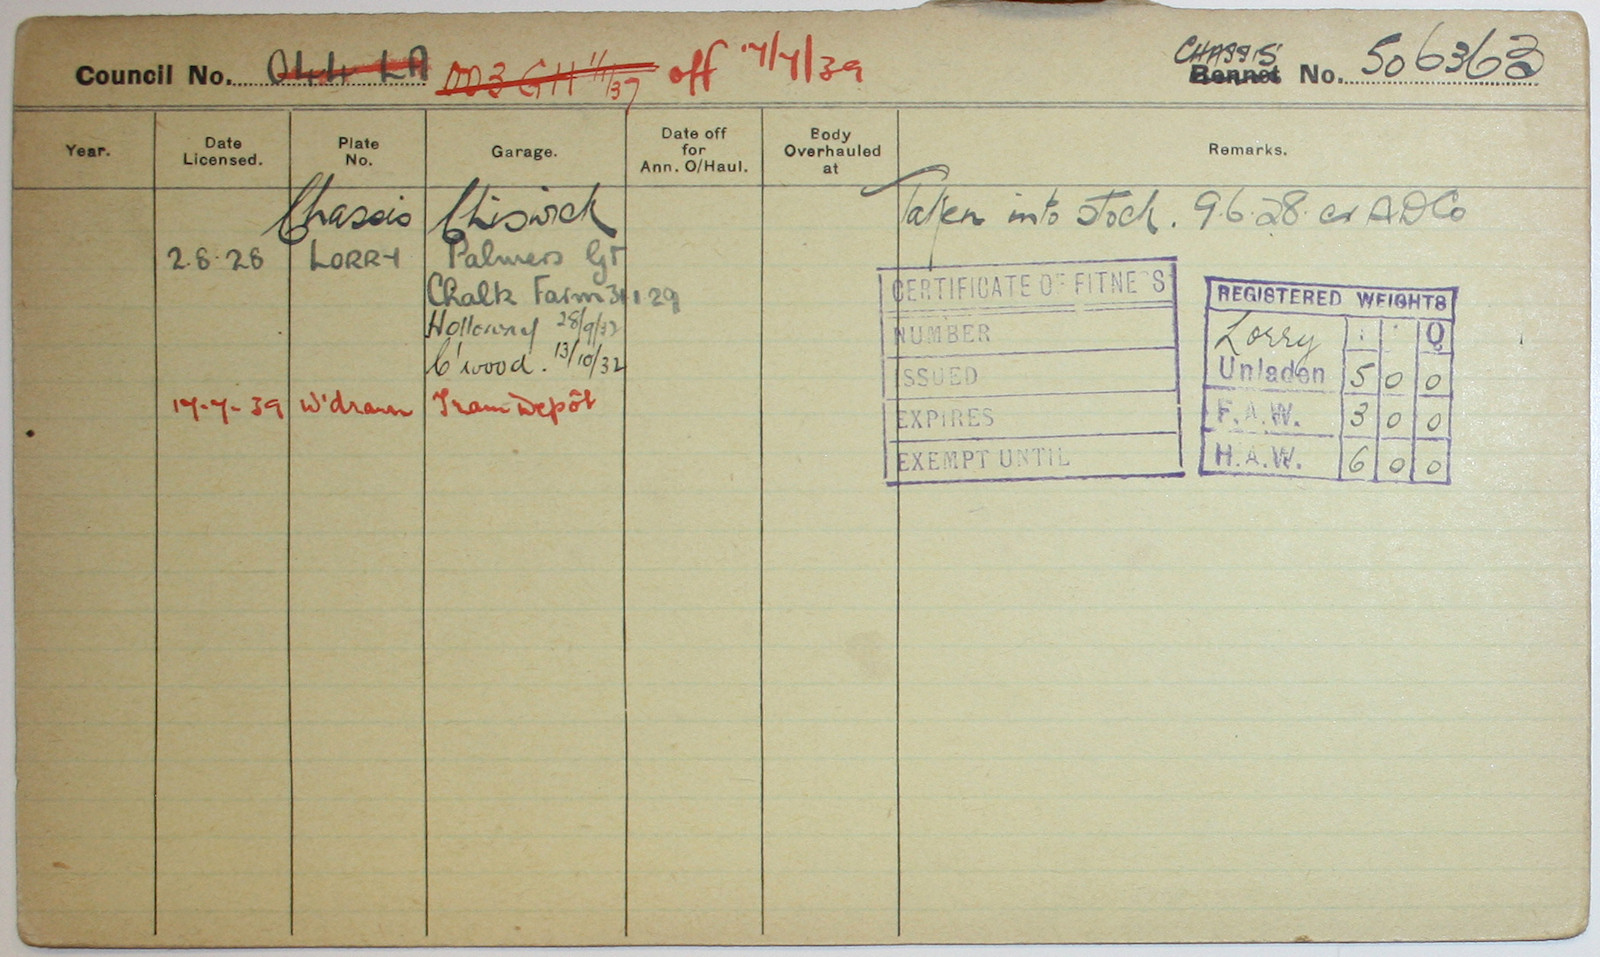 Council No. 044 LA 003 GH 1/1/37 off 17/7/39 CHASSIS Bonnet No. 506363
Year. Date Licensed. Plate No. Garage. Date off for Ann. O/Haul. Body Overhauled at Remarks.
Chassis Chiswick Taken into stock. 9.6.28. ADCo
2.8.28 LORRY Palmers Gr
Chalk Farm 31.1.29
Holloway 28/9/32
C'wood. 13/10/32
17-7-39 W'drawn Tram Depôt
CERTIFICATE OF FITNESS
NUMBER
ISSUED
EXPIRES
EXEMPT UNTIL
REGISTERED WEIGHTS
Lorry Q
Unladen 5 0 0
F.A.W. 3 0 0
H.A.W. 6 0 0